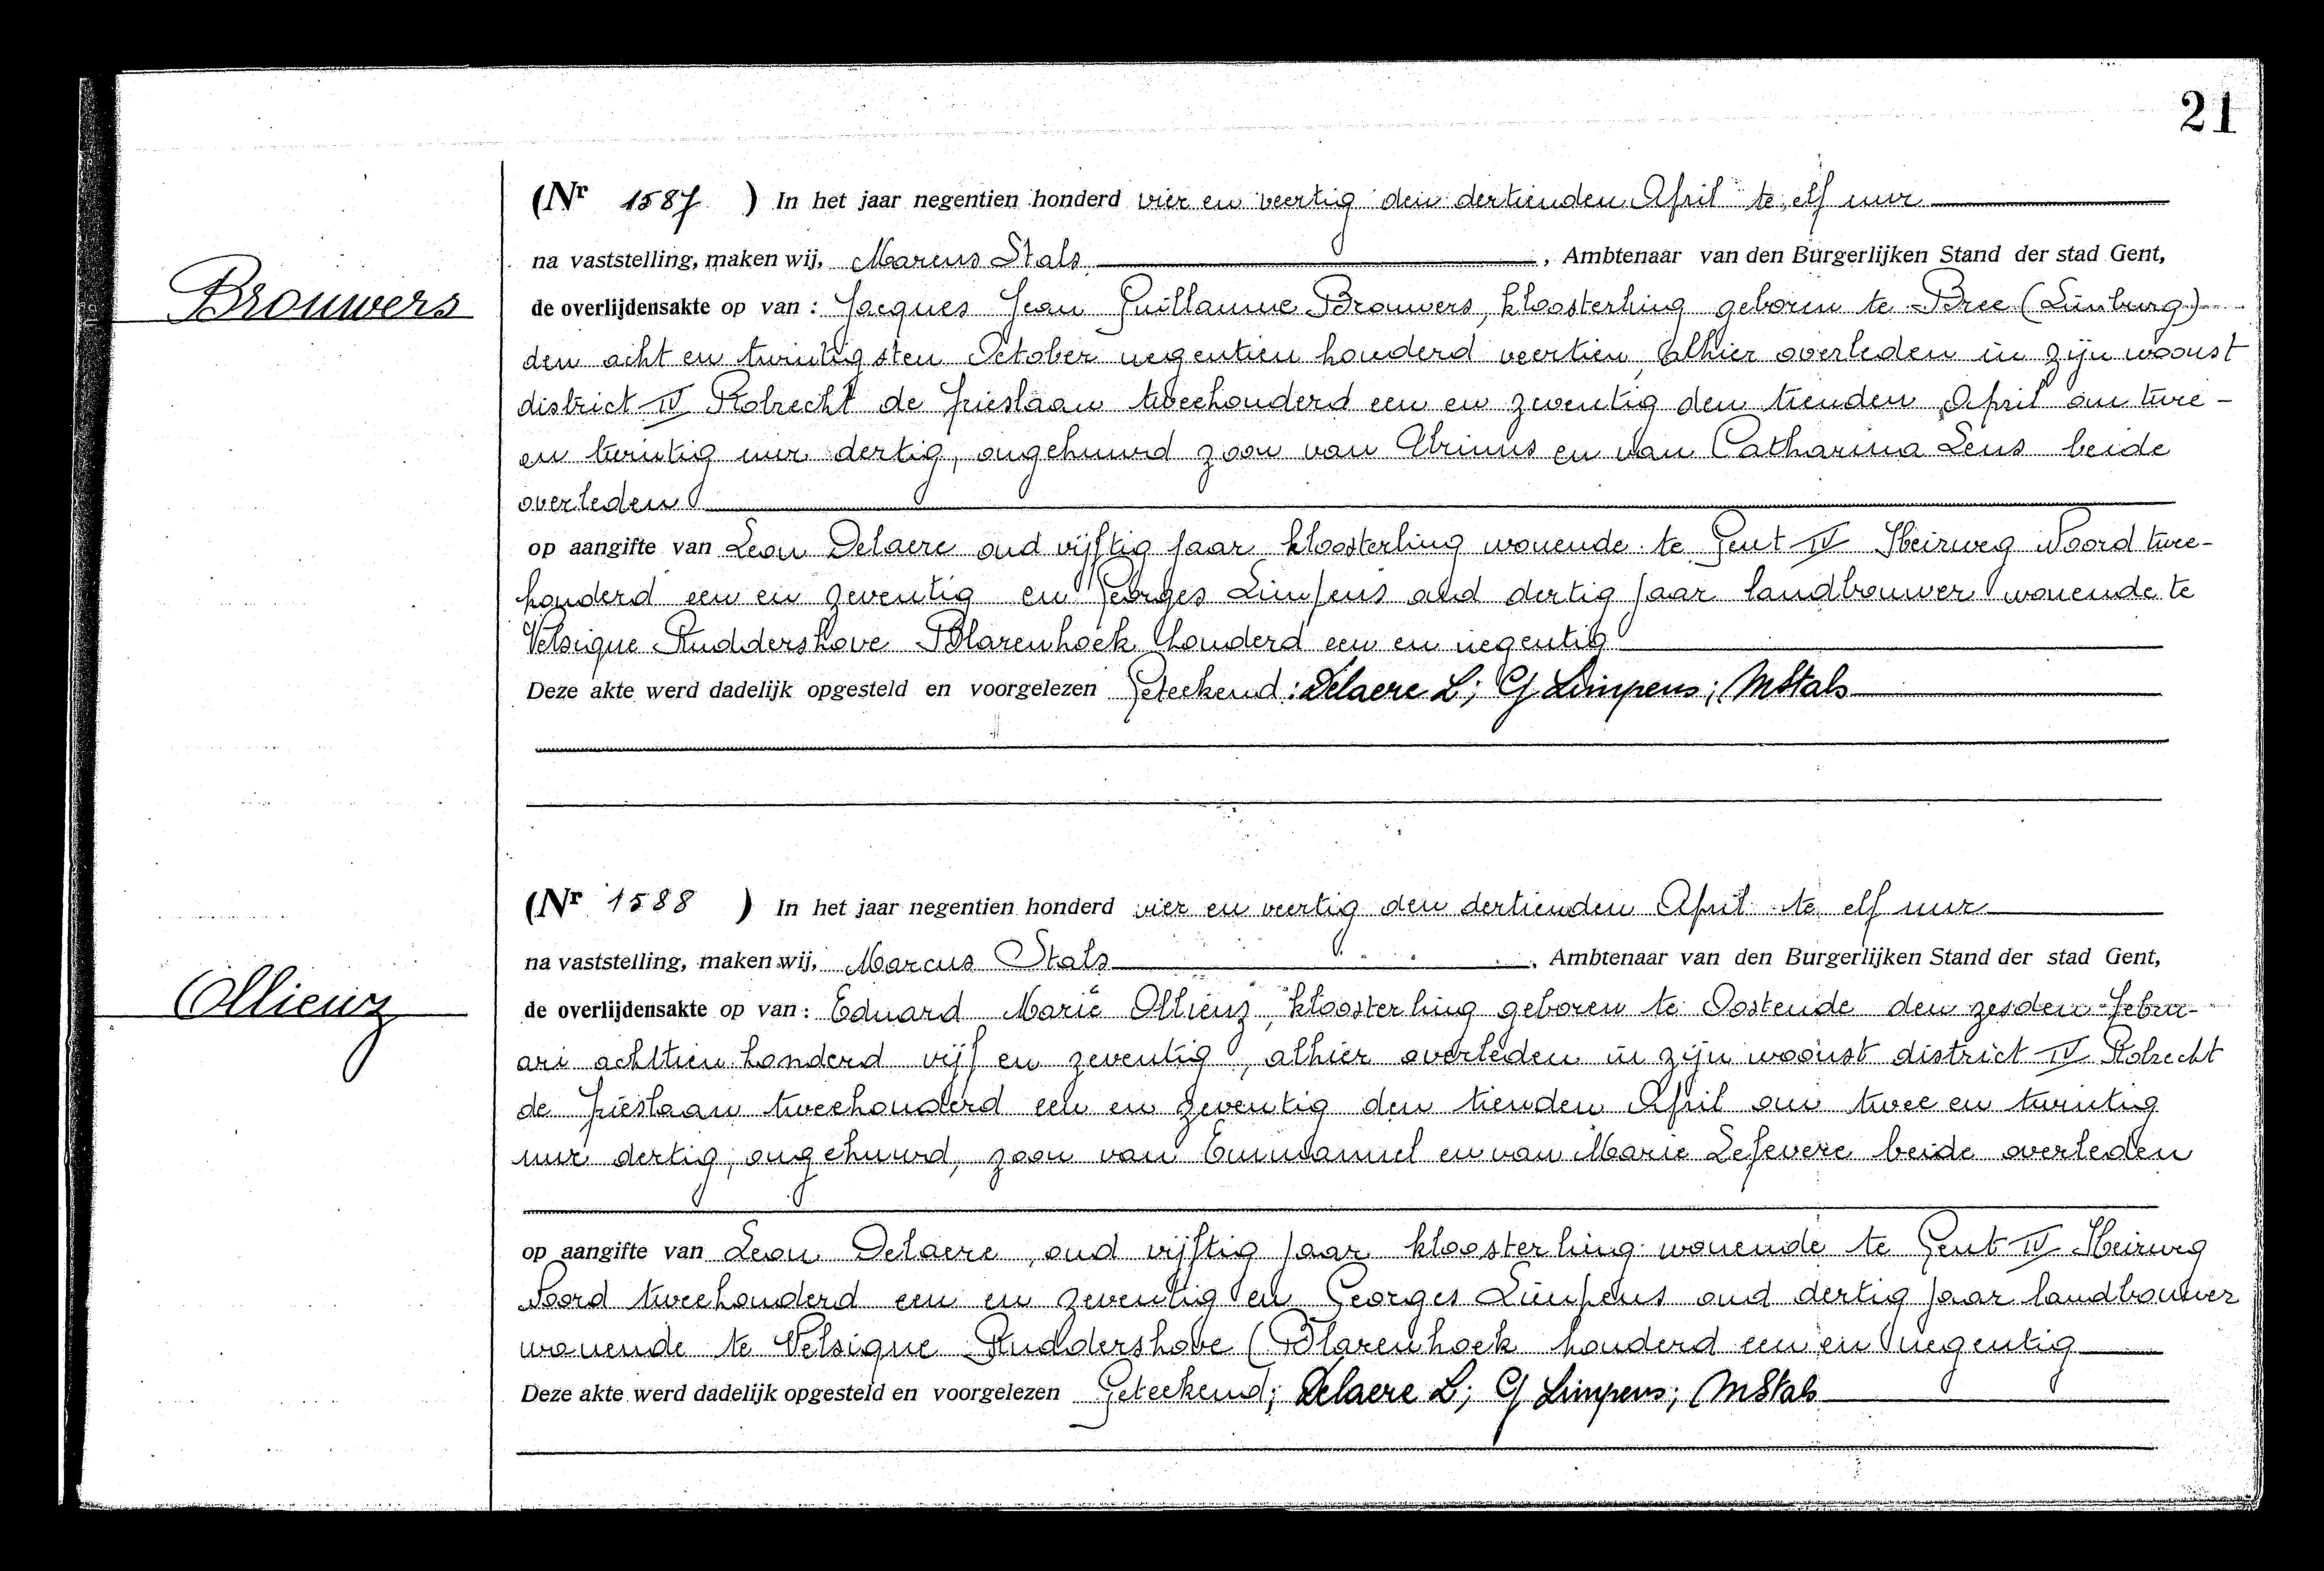 21
(Nr 1587 ) In het jaar negentien honderd vier en veertig den dertienden April te elf uur
na vaststelling, maken wij, Marcus Stals , Ambtenaar van den Burgerlijken Stand der stad Gent,
Brouwers
de overlijdensakte op van : Jacques Jean Guillaume Brouwers, kloosterling geboren te Bree (Limburg)
den acht en twintigsten October negentien honderd veertien, alhier overleden in zijn woonst
district IV Robrecht de Frieslaan tweehonderd een en zeventig den tienden April om twee-
en twintig uur dertig, ongehuwd zoon van en van Catharina Lens beide
overleden
op aangifte van Leon Delaere oud vijftig jaar kloosterling wonende te Gent IV Heirweg Noord twee-
honderd een en zeventig en Georges Limpens oud dertig jaar landbouwer wonende te
Velsique Ruddershove Blarenhoek honderd een en negentig
Deze akte werd dadelijk opgesteld en voorgelezen Geteekend: Delaere L; G Limpens; MStals
(Nr 1588 ) In het jaar negentien honderd vier en veertig den dertienden April te elf uur
na vaststelling, maken wij, Marcus Stals , Ambtenaar van den Burgerlijken Stand der stad Gent,
Ollieuz
de overlijdensakte op van : Eduard Marie Ollieuz, kloosterling geboren te Oostende den zesden Febru-
ari achttien honderd vijf en zeventig, alhier overleden in zijn woonst district IV Robrecht
de Frieslaan tweehonderd een en zeventig den tienden April om twee en twintig
uur dertig, ongehuwd, zoon van en van Marie Lefevere beide overleden
op aangifte van Leon Delaere, oud vijftig jaar kloosterling wonende te Gent IV Heirweg
Noord tweehonderd een en zeventig en Georges Limpens oud dertig jaar landbouwer
wonende te Velsique Ruddershove (Blarenhoek honderd een en negentig
Deze akte werd dadelijk opgesteld en voorgelezen Geteekend; Delaere L; G Limpens; MStals